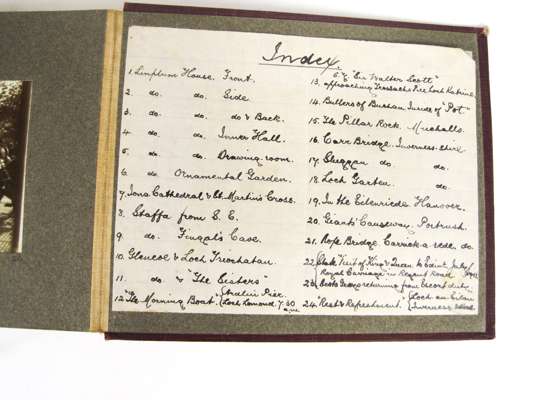 Index
1. Linplum House. Front.
2. do. do. Side
3. do. do. do & Back.
4. do. do. Inner Hall.
5. do. do. Drawing room.
6. do Ornamental Garden.
7. Iona Cathedral & St. Martin's Cross.
8. Staffa from S. E.
9. do. Fingal's Cave.
10. Glencoe & Loch Triochatan.
11. do. & "The Sisters"
12. "The Morning Boat". {Ardlui Pier.
{Loch Lomond. 7.30 a.m.
S.S. "Sir Walter Scott"
13. approaching Trossachs Pier Loch Katrine
14. Bullers of Buchan Inside of "Pot"
15. The Pillar Rock. Muchalls.
16. Carr Bridge. Inverness-shire
17. Sluggan do. do.
18. Loch Garten. do.
19. In the Eilenriede Hanover.
20. Giants Causeway, Portrush.
21. Rope Bridge Carrick-a-rede. do.
22. {State Visit of King & Queen to Edinr. July
Royal Carriage in Regent Road
23. {Scots Greys returning from Escort duty
24. "Rest & Refreshment" {Loch-an-Eilan
{Inverness-shire